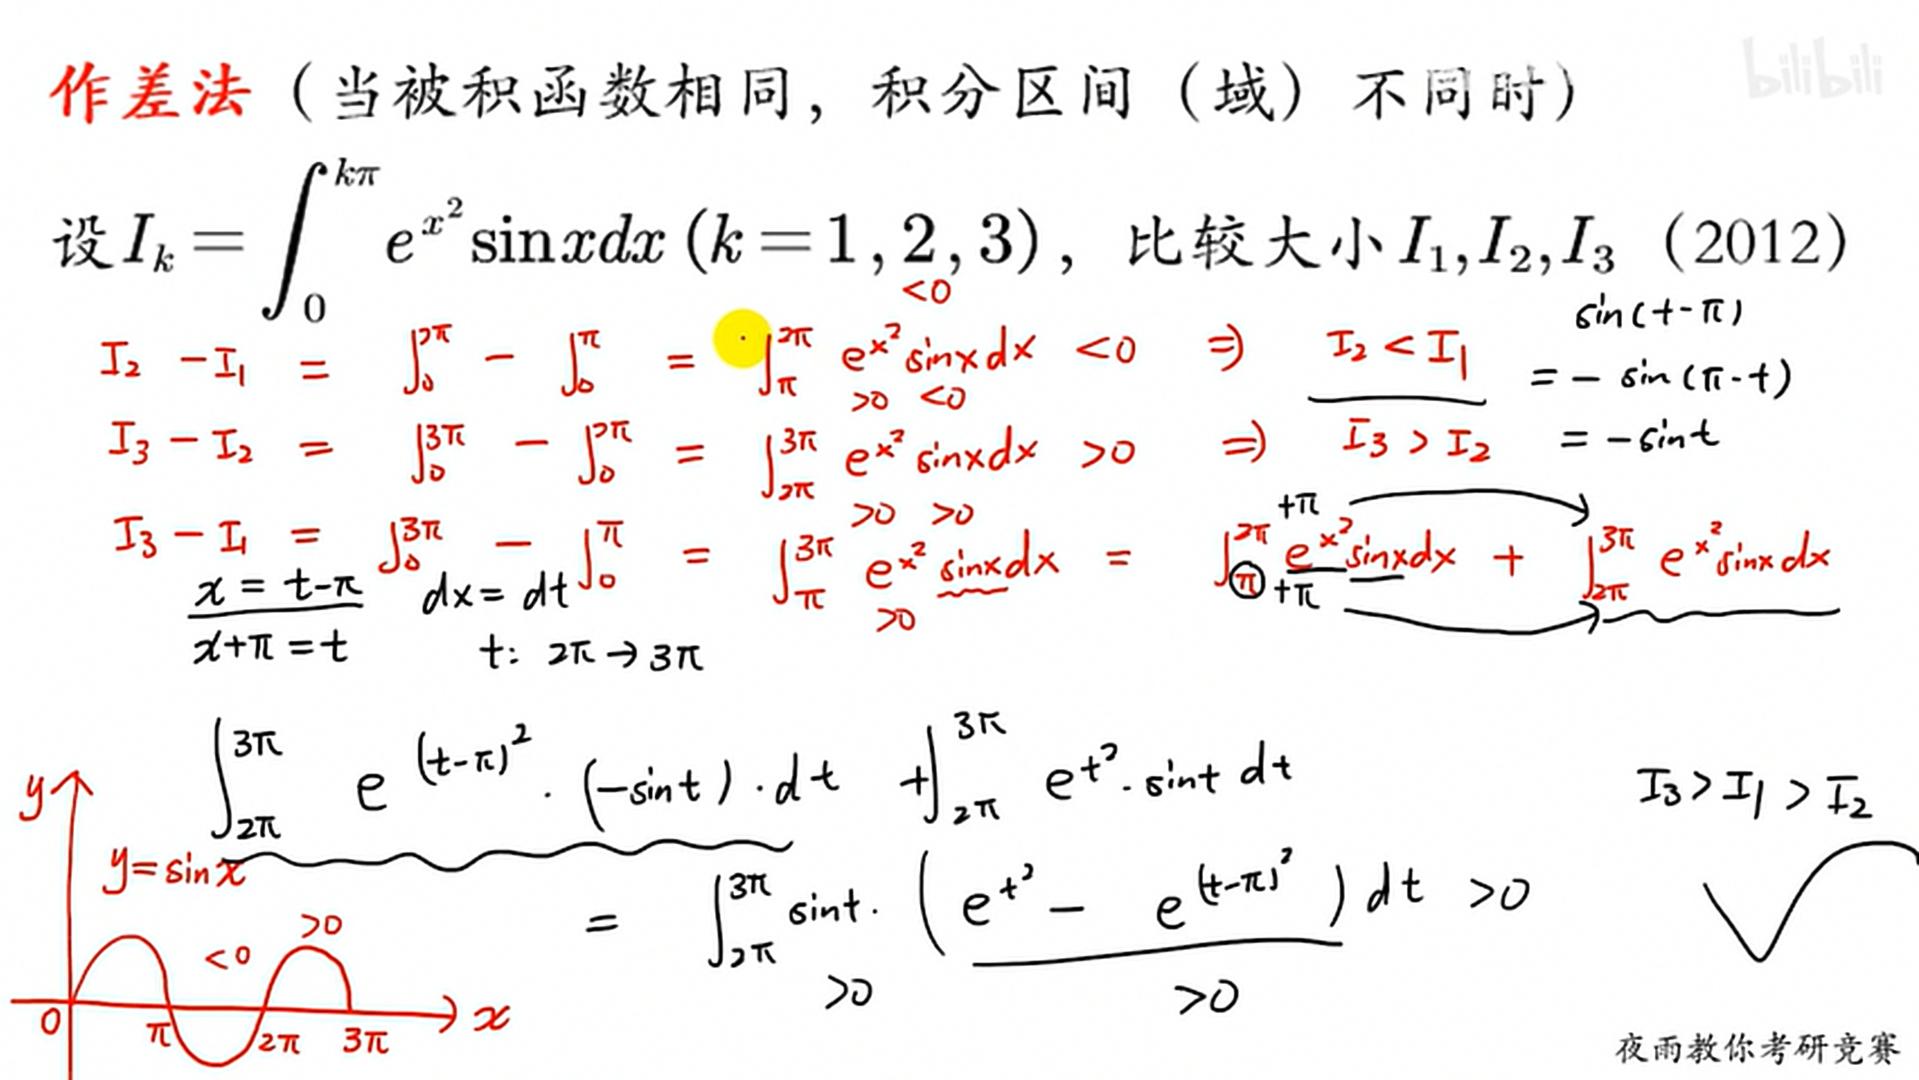 bilibili
作差法（当被积函数相同，积分区间（域）不同时）
设 I_k = ∫_0^{kπ} e^{x^2} sin x dx (k = 1, 2, 3)，比较大小 I_1, I_2, I_3（2012）
<0
I_2 - I_1 = ∫_0^{2π} - ∫_0^{π} = ∫_π^{2π} e^{x^2} sinx dx <0 ⇒ I_2 < I_1
>0 <0
sin(t-π)
= - sin(π-t)
= -sint
I_3 - I_2 = ∫_0^{3π} - ∫_0^{2π} = ∫_{2π}^{3π} e^{x^2} sinx dx >0 ⇒ I_3 > I_2
>0 >0
I_3 - I_1 = ∫_0^{3π} - ∫_0^{π} = ∫_π^{3π} e^{x^2} sinx dx = ∫_π^{2π} e^{x^2} sinx dx + ∫_{2π}^{3π} e^{x^2} sinx dx
>0
+π
+π
x = t-π dx = dt
x+π = t t: 2π → 3π
∫_{2π}^{3π} e^{(t-π)^2} · (-sint) · dt + ∫_{2π}^{3π} e^{t^2} · sint dt
I_3 > I_1 > I_2
= ∫_{2π}^{3π} sint · (e^{t^2} - e^{(t-π)^2}) dt >0
>0 >0
y
y=sinx
<0 >0
0 π 2π 3π x
夜雨教你考研竞赛